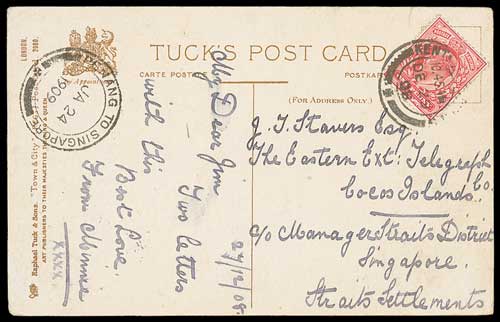 TUCK'S POST CARD
CARTE POSTALE
POSTKARTE
(FOR ADDRESS ONLY.)
PENANG TO SINGAPORE
JA 24
1909
KENT
DE
My Dear Jim
Two letters
with this
Best Love
From Monnie
xxxx
27/12/08.
J. T. Stavers Esq.
The Eastern Ext: Telegraph Co
Cocos Islands.
c/o Manager Straits District
Singapore.
Straits Settlements
Raphael Tuck & Sons. "Town & City"
ART PUBLISHERS TO THEIR MAJESTIES THE KING & QUEEN.
LONDON.